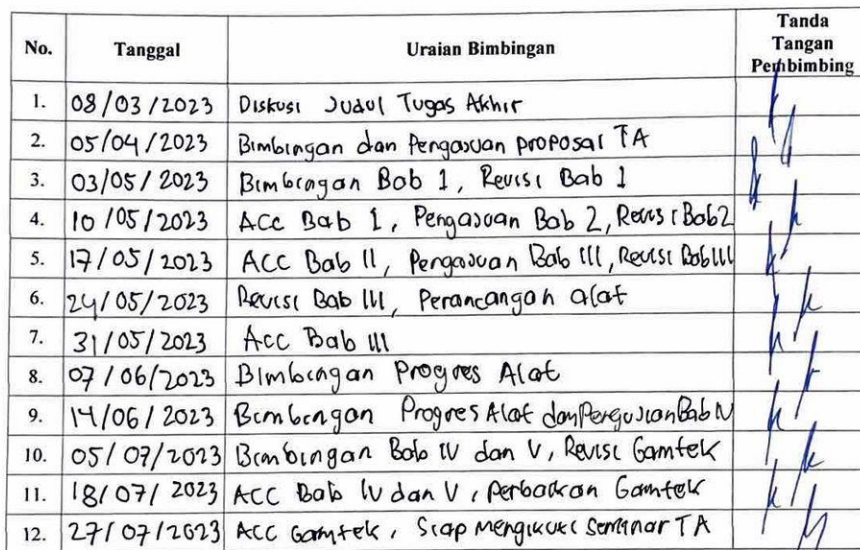 No. Tanggal Uraian Bimbingan Tanda Tangan Pembimbing
1. 08/03/2023 Diskusi Judul Tugas Akhir
2. 05/04/2023 Bimbingan dan Pengajuan proposal TA
3. 03/05/2023 Bimbingan Bab 1, Revisi Bab 1
4. 10/05/2023 ACC Bab 1, Pengajuan Bab 2, Revisi Bab 2
5. 17/05/2023 ACC Bab II, Pengajuan Bab III, Revisi Bab III
6. 24/05/2023 Revisi Bab III, Perancangan alat
7. 31/05/2023 Acc Bab III
8. 07/06/2023 Bimbingan Progres Alat
9. 14/06/2023 Bimbingan Progres Alat dan Pengujian Bab IV
10. 05/07/2023 Bimbingan Bab IV dan V, Revisi Gamtek
11. 18/07/2023 ACC Bab IV dan V, Perbaikan Gamtek
12. 27/07/2023 ACC Gamtek, Siap Mengikuti Seminar TA